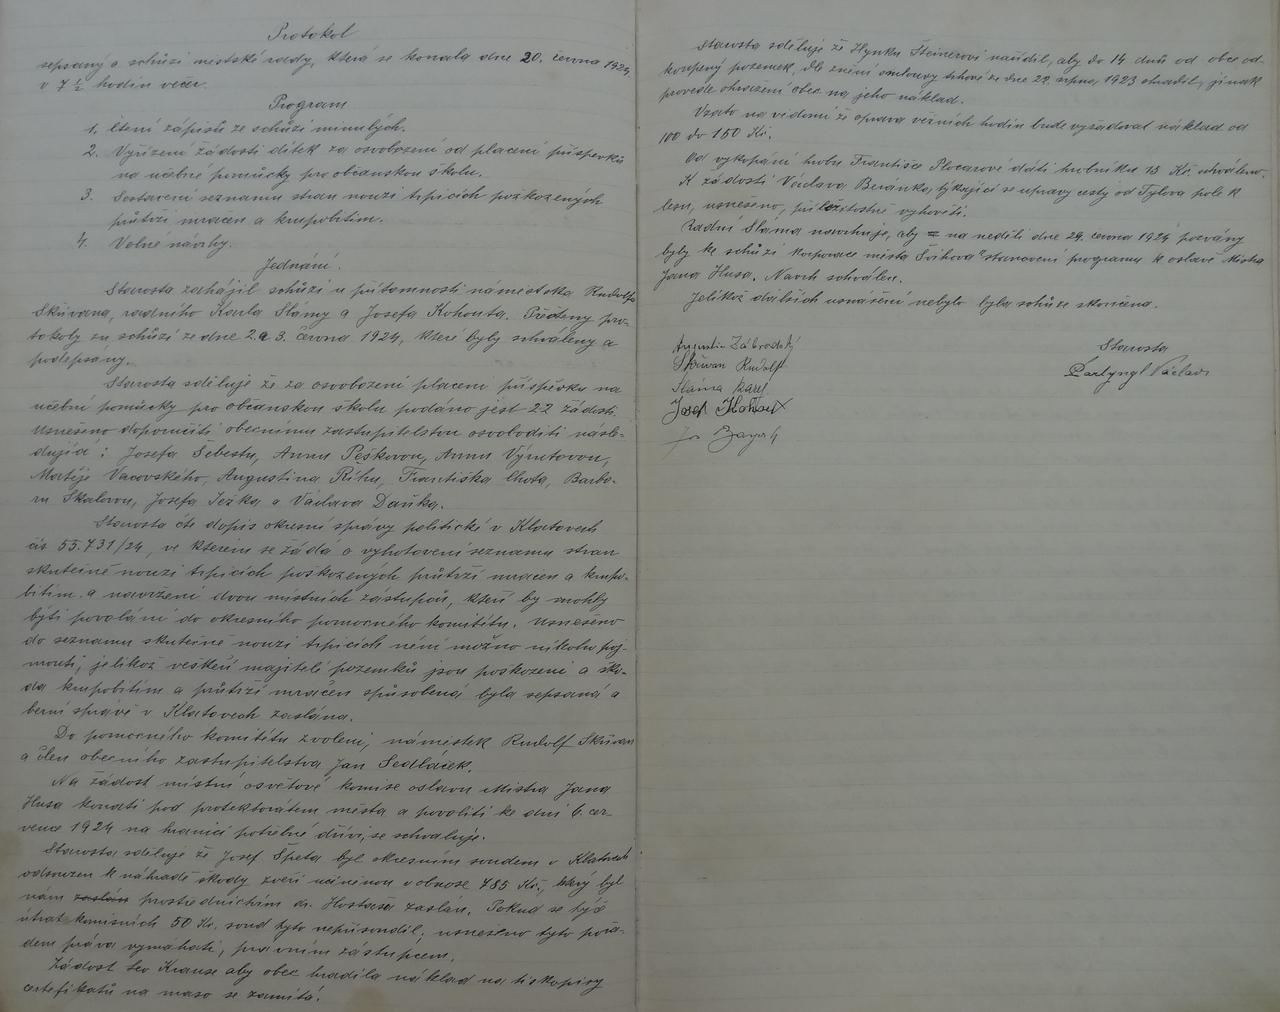 Protokol
sepsaný o schůzi městské rady, která se konala dne 20. června 1924
v 7 ½ hodin večer.
Program
1. Čtení zápisů ze schůzí minulých.
2. Vyřízení žádosti dítek za osvobození od placení příspěvků
na učebné pomůcky pro občanskou školu.
3. Sestavení seznamu stran nouzi trpících poškozených
průtrží mračen a krupobitím.
4. Volné návrhy.
Jednání.
Starosta zahájil schůzi u přítomnosti náměstka Rudolfa
Skřivana, radního Karla Slámy a Josefa Kohouta. Předčteny pro-
tokoly ze schůzí ze dne 2. a 3. června 1924, které byly schváleny a
podepsány.
Starosta sděluje že za osvobození placení příspěvku na
učební pomůcky pro občanskou školu podáno jest 22 žádostí.
Usneseno doporučiti obecnímu zastupitelstvu osvoboditi násle-
dující: Josefa Šebestu, Annu Peškovou, Annu Výrutovou,
Matěje Vacovského, Augustina Říhu, Františka Chota, Barbo-
ru Skalovou, Josefa Ježka a Václava Daňka.
Starosta čte dopis okresní správy politické v Klatovech
čís 55.731/24, ve kterém se žádá o vyhotovení seznamu stran
skutečně nouzi trpících poškozených průtrží mračen a krupo-
bitím a navržení dvou místních zástupců, kteří by mohly
býti povoláni do okresního pomocného komitétu. Usneseno
do seznamu skutečně nouzi trpících není možno nikoho poj-
mouti, jelikož veškeří majitelé pozemků jsou poškozeni a ško-
da krupobitím a průtrží mračen způsobená byla sepsaná a
berní správě v Klatovech zaslána.
Do pomocného komitétu zvoleni, náměstek Rudolf Skřivan
a člen obecního zastupitelstva Jan Sedláček.
Na žádost místní osvětové komise oslavu Mistra Jana
Husa konati pod protektorátem města a povoliti ke dni 6. čer-
vence 1924 na hranici potřebné dříví, se schvaluje.
Starosta sděluje že Josef Špeta byl okresním soudem v Klatovech
odsouzen k náhradě škody zvěří učiněnou v obnose 785 Kč, který byl
nám zaslán prostřednictvím dr. Hostaše zaslán. Pokud se týče
útrat komisních 50 Kč. soud tyto nepřisoudil; usneseno tyto pořa-
dem práva vymáhati, právním zástupcem.
Žádost Leo Krause aby obec hradila náklad na tiskopisy
certifikátů na maso se zamítá.
Starosta sděluje že Hynku Steinerovi nařídil, aby do 14 dnů od obce od-
koupený pozemek, dle znění smlouvy trhové ze dne 22. srpna 1923 ohradil, jinak
provede ohrazení obec na jeho náklad.
Vzato na vědomí že oprava věžních hodin bude vyžadovat náklad od
100 do 150 Kč.
Od vykopání hrobu Františce Plocarové dáti hrobníku 15 Kč schváleno.
K žádosti Václava Beranka, týkající se úpravy cesty od Tylova pole k
lesu, usneseno, příležitostně vyhověti.
Radní Sláma navrhuje, aby na neděli dne 29. června 1924 pozvány
byly ke schůzi korporace města Švihova stanovení programu k oslavě Mistra
Jana Husa. Návrh schválen.
Jelikož dalších usnesení nebylo byla schůze skončena.
Starosta
Augustin Zábrodský
Skřivan Rudolf
Sláma Karel
Josef Kohout
Václav